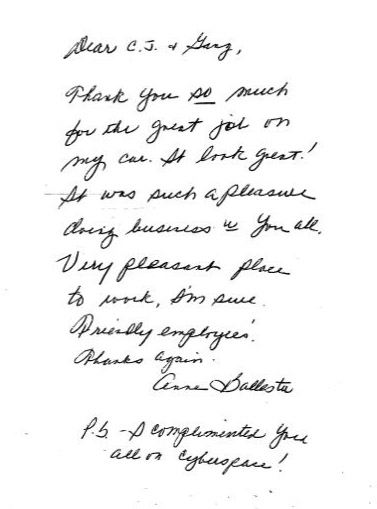 Dear C.J. & Gang,
Thank you so much
for the great job on
my car. It look great!
It was such a pleasure
doing business w you all.
Very pleasant place
to work, I'm sure.
Friendly employees.
Thanks again.
Anne Ballesta
P.S. - I complimented you
all on cyberspace!